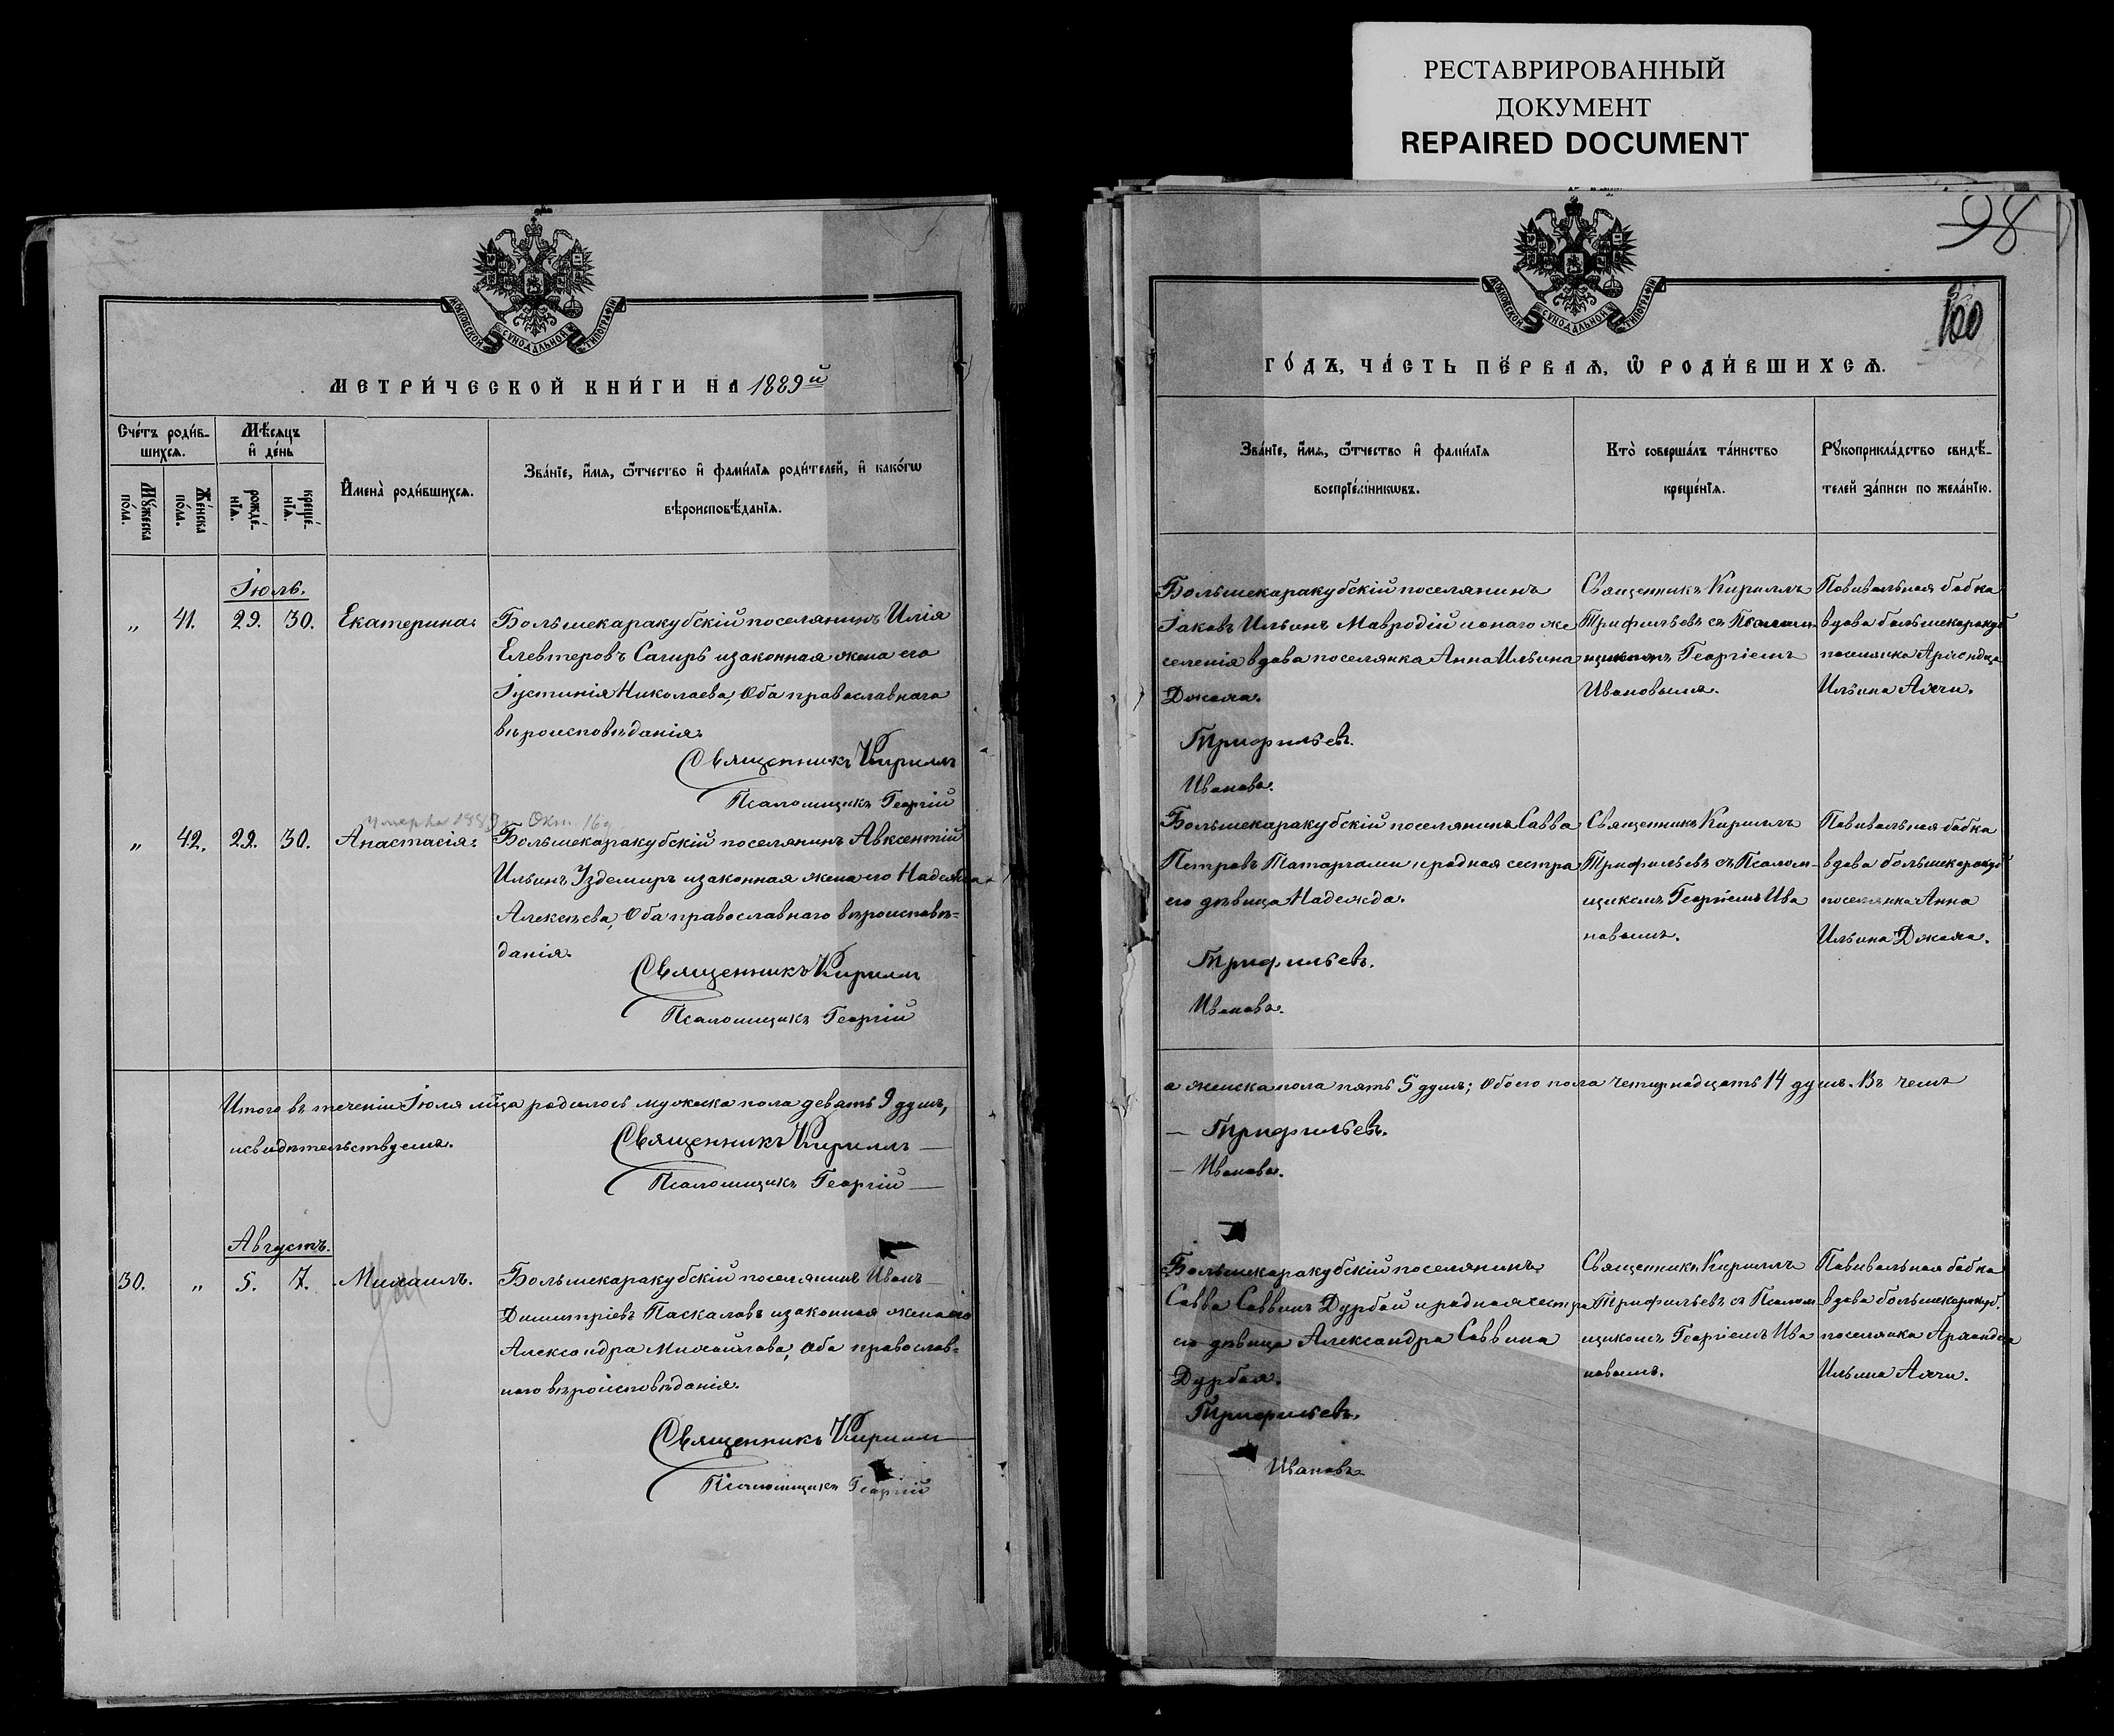 РЕСТАВРИРОВАННЫЙ
ДОКУМЕНТ
REPAIRED DOCUMENT
МОСКОВСКОЙ СѴНОДАЛЬНОЙ ТИПОГРАФІИ
МЕТРИ́ЧЕСКОЙ КНИ́ГИ НА 1889й
Сче́тъ роди́в-
шихсѧ.
Мѣ́сѧцъ
и҆ де́нь
Мꙋ́жеска
по́ла.
Же́нска
по́ла.
рожде́-
нїѧ.
креще́-
нїѧ.
И҆мена̀ роди́вшихсѧ.
Зва́нїе, и҆́мѧ, ѻ҆́тчество и҆ фами́лїѧ роди́телей, и҆ како́гѡ
вѣроисповѣ́данїѧ.
Іюль.
„ 41. 29. 30. Екатерина.
Большекаракубскій поселянинъ Илія
Елевтеровъ Сагиръ и законная жена его
Іустинія Николаева, Оба православнаго
вѣроисповѣданія.
Священникъ Кириллъ
Псаломщикъ Георгій
умерла 1889 г. Окт. 16 д.
„ 42. 29. 30. Анастасія.
Большекаракубскій поселянинъ Авксентій
Ильинъ Уздемиръ и законная жена его Надежда
Алексѣева, Оба православнаго вѣроисповѣ-
данія.
Священникъ Кириллъ
Псаломщикъ Георгій
Итого въ теченіи Іюля мѣца родилось мужска пола девять 9 душъ,
и свидѣтельствуемъ.
Священникъ Кириллъ —
Псаломщикъ Георгій —
Августъ.
30. „ 5. 7. Михаилъ.
Большекаракубскій поселянинъ Иванъ
Димитріевъ Паскаловъ и законная жена его
Александра Михайлова, Оба православ-
наго вѣроисповѣданія.
Священникъ Кириллъ
Псаломщикъ Георгій
98
100
МОСКОВСКОЙ СѴНОДАЛЬНОЙ ТИПОГРАФІИ
ГО́ДЪ, ЧА́СТЬ ПЕ́РВАѦ, Ѡ҆ РОДИ́ВШИХСѦ.
Зва́нїе, и҆́мѧ, ѻ҆́тчество и҆ фами́лїѧ
воспрїе́мникѡвъ.
Кто̀ соверша́лъ та́инство
креще́нїѧ.
Рꙋкоприкла́дство свидѣ́-
телей за́писи по жела́нїю.
Большекаракубскій поселянинъ
Іаковъ Ильинъ Мавродій и онаго же
селенія вдова поселянка Анна Ильина
Джама.
Трифильевъ.
Ивановъ.
Священникъ Кириллъ
Трифильевъ съ Псалом-
щикомъ Георгіемъ
Ивановымъ.
Повивальная бабка
вдова большекаракуб
поселянка
Ильина Ахчи.
Большекаракубскій поселянинъ Савва
Петровъ Татаргами и родная сестра
его дѣвица Надежда.
Трифильевъ.
Ивановъ.
Священникъ Кириллъ
Трифильевъ съ Псалом-
щикомъ Георгіемъ Ива
новымъ.
Повивальная бабка
вдова большекаракуб
поселянка Анна
Ильина Джама.
а женска пола пять 5 душъ; Обоего пола четырнадцать 14 душъ. Въ чемъ
— Трифильевъ.
— Ивановъ.
Большекаракубскій поселянинъ
Савва Саввинъ Дурбай и родная сестра
его дѣвица Александра Саввина
Дурбая.
Трифильевъ.
Ивановъ
Священникъ Кириллъ
Трифильевъ съ Псалом-
щикомъ Георгіемъ Ива
новымъ.
Повивальная бабка
вдова большекаракуб.
поселянка
Ильина Ахчи.